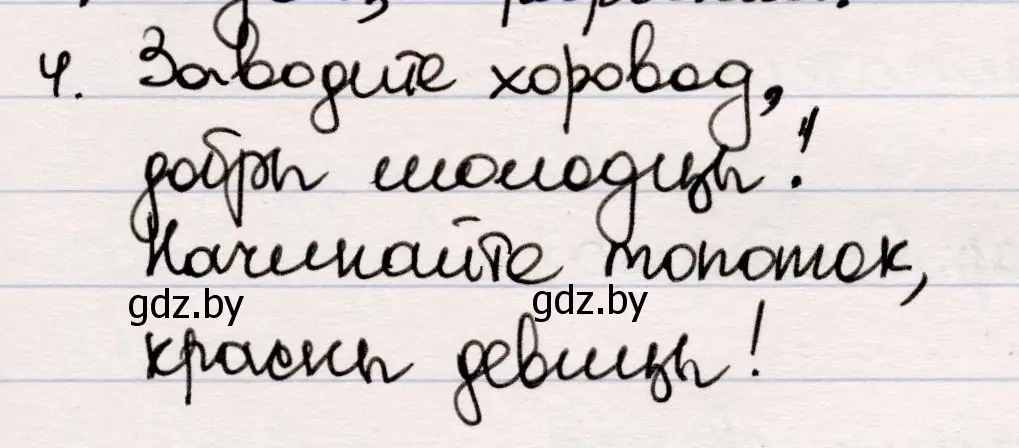 4. Заводите хоровод,
добры молодцы!
Начинайте топоток,
gdz.by gdz.by
красны девицы!